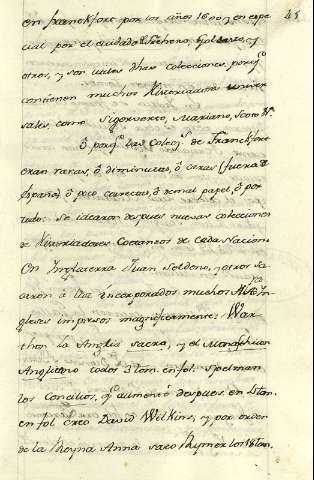 45
en Franckfort por los años 1600 y en espe
cial por el cuidado Frehero, Goldasto, y
otros, y son utiles dhas colecciones, porq.e
contienen muchos Historiadores univer
sales, como Sigeverto, Mariano, Scoto &.
ô porq.e las Colecq.s de Franckfort
eran raras, ô diminutas, ô caras (fuera de
España) ô poco correctas, ô de mal papel, ô por
todo: se idearon despues nuevas colecciones
de Historiadores Coetaneos de cada Nacion.
En Inglaterra Juan Seldeno, y otros sa
caron â luz incorporados muchos Hist.res In
gleses impresos magnificamente: War
thon la Anglia sacra, y el Monasticon
Anglicano todos 3 tom. en fol. Spelman
los Concilios, q.e aumentô despues en 4 tom.
en fol. creo David Wilkins, y por orden
de la Reyna Anna saco Rymer los 18 tom.